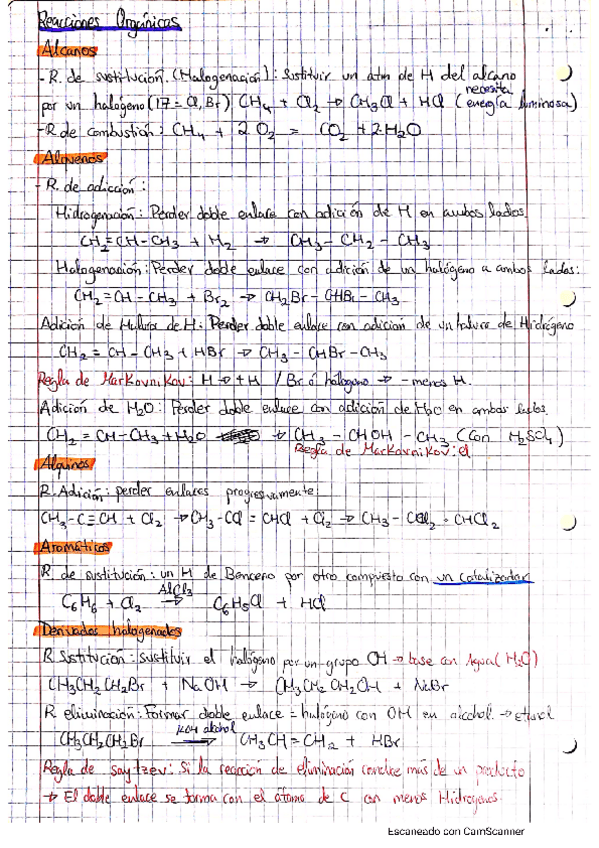 Reacciones Orgánicas
Alcanos
- R. de sustitución (Halogenación): Sustituir un atm de H del alcano
por un halógeno (17 = Cl, Br) CH4 + Cl2 → CH3Cl + HCl (necesita energía luminosa)
- R de combustión: CH4 + 2 O2 = CO2 + 2·H2O
Alquenos
- R. de adicción:
Hidrogenación: Perder doble enlace con adición de H en ambos lados.
CH2=CH-CH3 + H2 → CH3-CH2-CH3
Halogenación: Perder doble enlace con adición de un halógeno a ambos lados:
CH2=CH-CH3 + Br2 → CH2Br-CHBr-CH3
Adición de Haluro de H: Perder doble enlace con adicion de un haluro de Hidrógeno
CH2=CH-CH3 + HBr → CH3-CHBr-CH3
Regla de Markovnikov: H → + H / Br ó halogeno → - menos H.
Adición de H2O: Perder doble enlace con adición de H2O en ambos lados.
CH2=CH-CH3 + H2O → CH3-CHOH-CH3 (Con H2SO4)
Regla de Markovnikov: el
Alquinos
R. Adición: perder enlaces progresivamente:
CH3-C≡CH + Cl2 → CH3-CCl=CHCl + Cl2 → CH3-CCl2-CHCl2
Aromáticos
R. de sustitución: un H de Benceno por otro compuesto con un catalizador
C6H6 + Cl2 AlCl3→ C6H5Cl + HCl
Derivados halogenados
R Sstitución: sustituir el halógeno por un grupo OH → base con Agua (H2O)
CH3CH2CH2Br + NaOH → CH3CH2CH2OH + NaBr
R eliminación: Formar doble enlace = halógeno con OH en alcohol. → etanol
CH3CH2CH2Br KOH alcohol→ CH3CH=CH2 + HBr
Regla de saytzev: si la reacción de eliminación conduce más de un producto
→ El doble enlace se forma con el átomo de C con menos Hidrogenos.
Escaneado con CamScanner